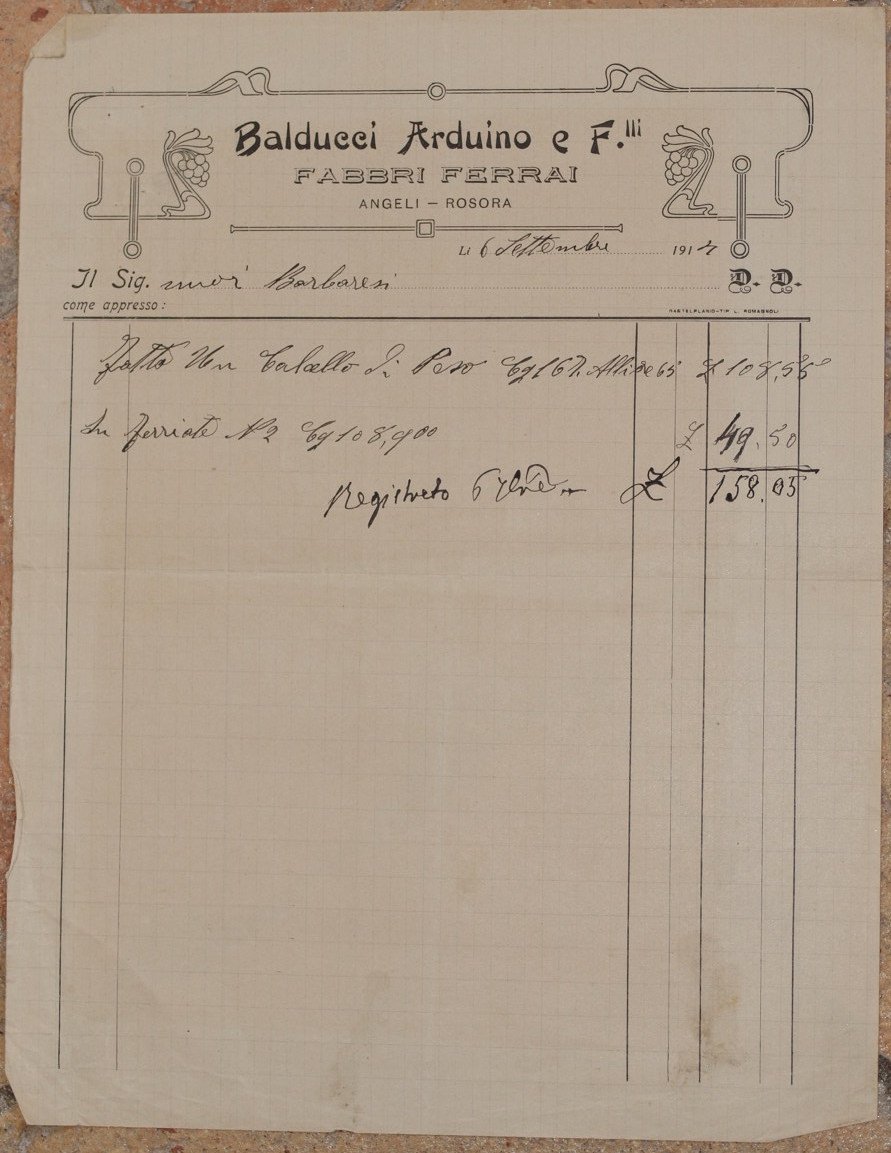 Balducci Arduino e F.lli
FABBRI FERRAI
ANGELI — ROSORA
Li 6 Settembre 191
Il Sig. Barbaresi D. D.
come appresso:
CASTELPLANIO-TIP. L. ROMAGNOLI
Fatto Un Di Peso Cg 167. 65 £ 108,55
In Ferriate N 2 Cg 108,900
£ 49.50
Registrato £ 158.05